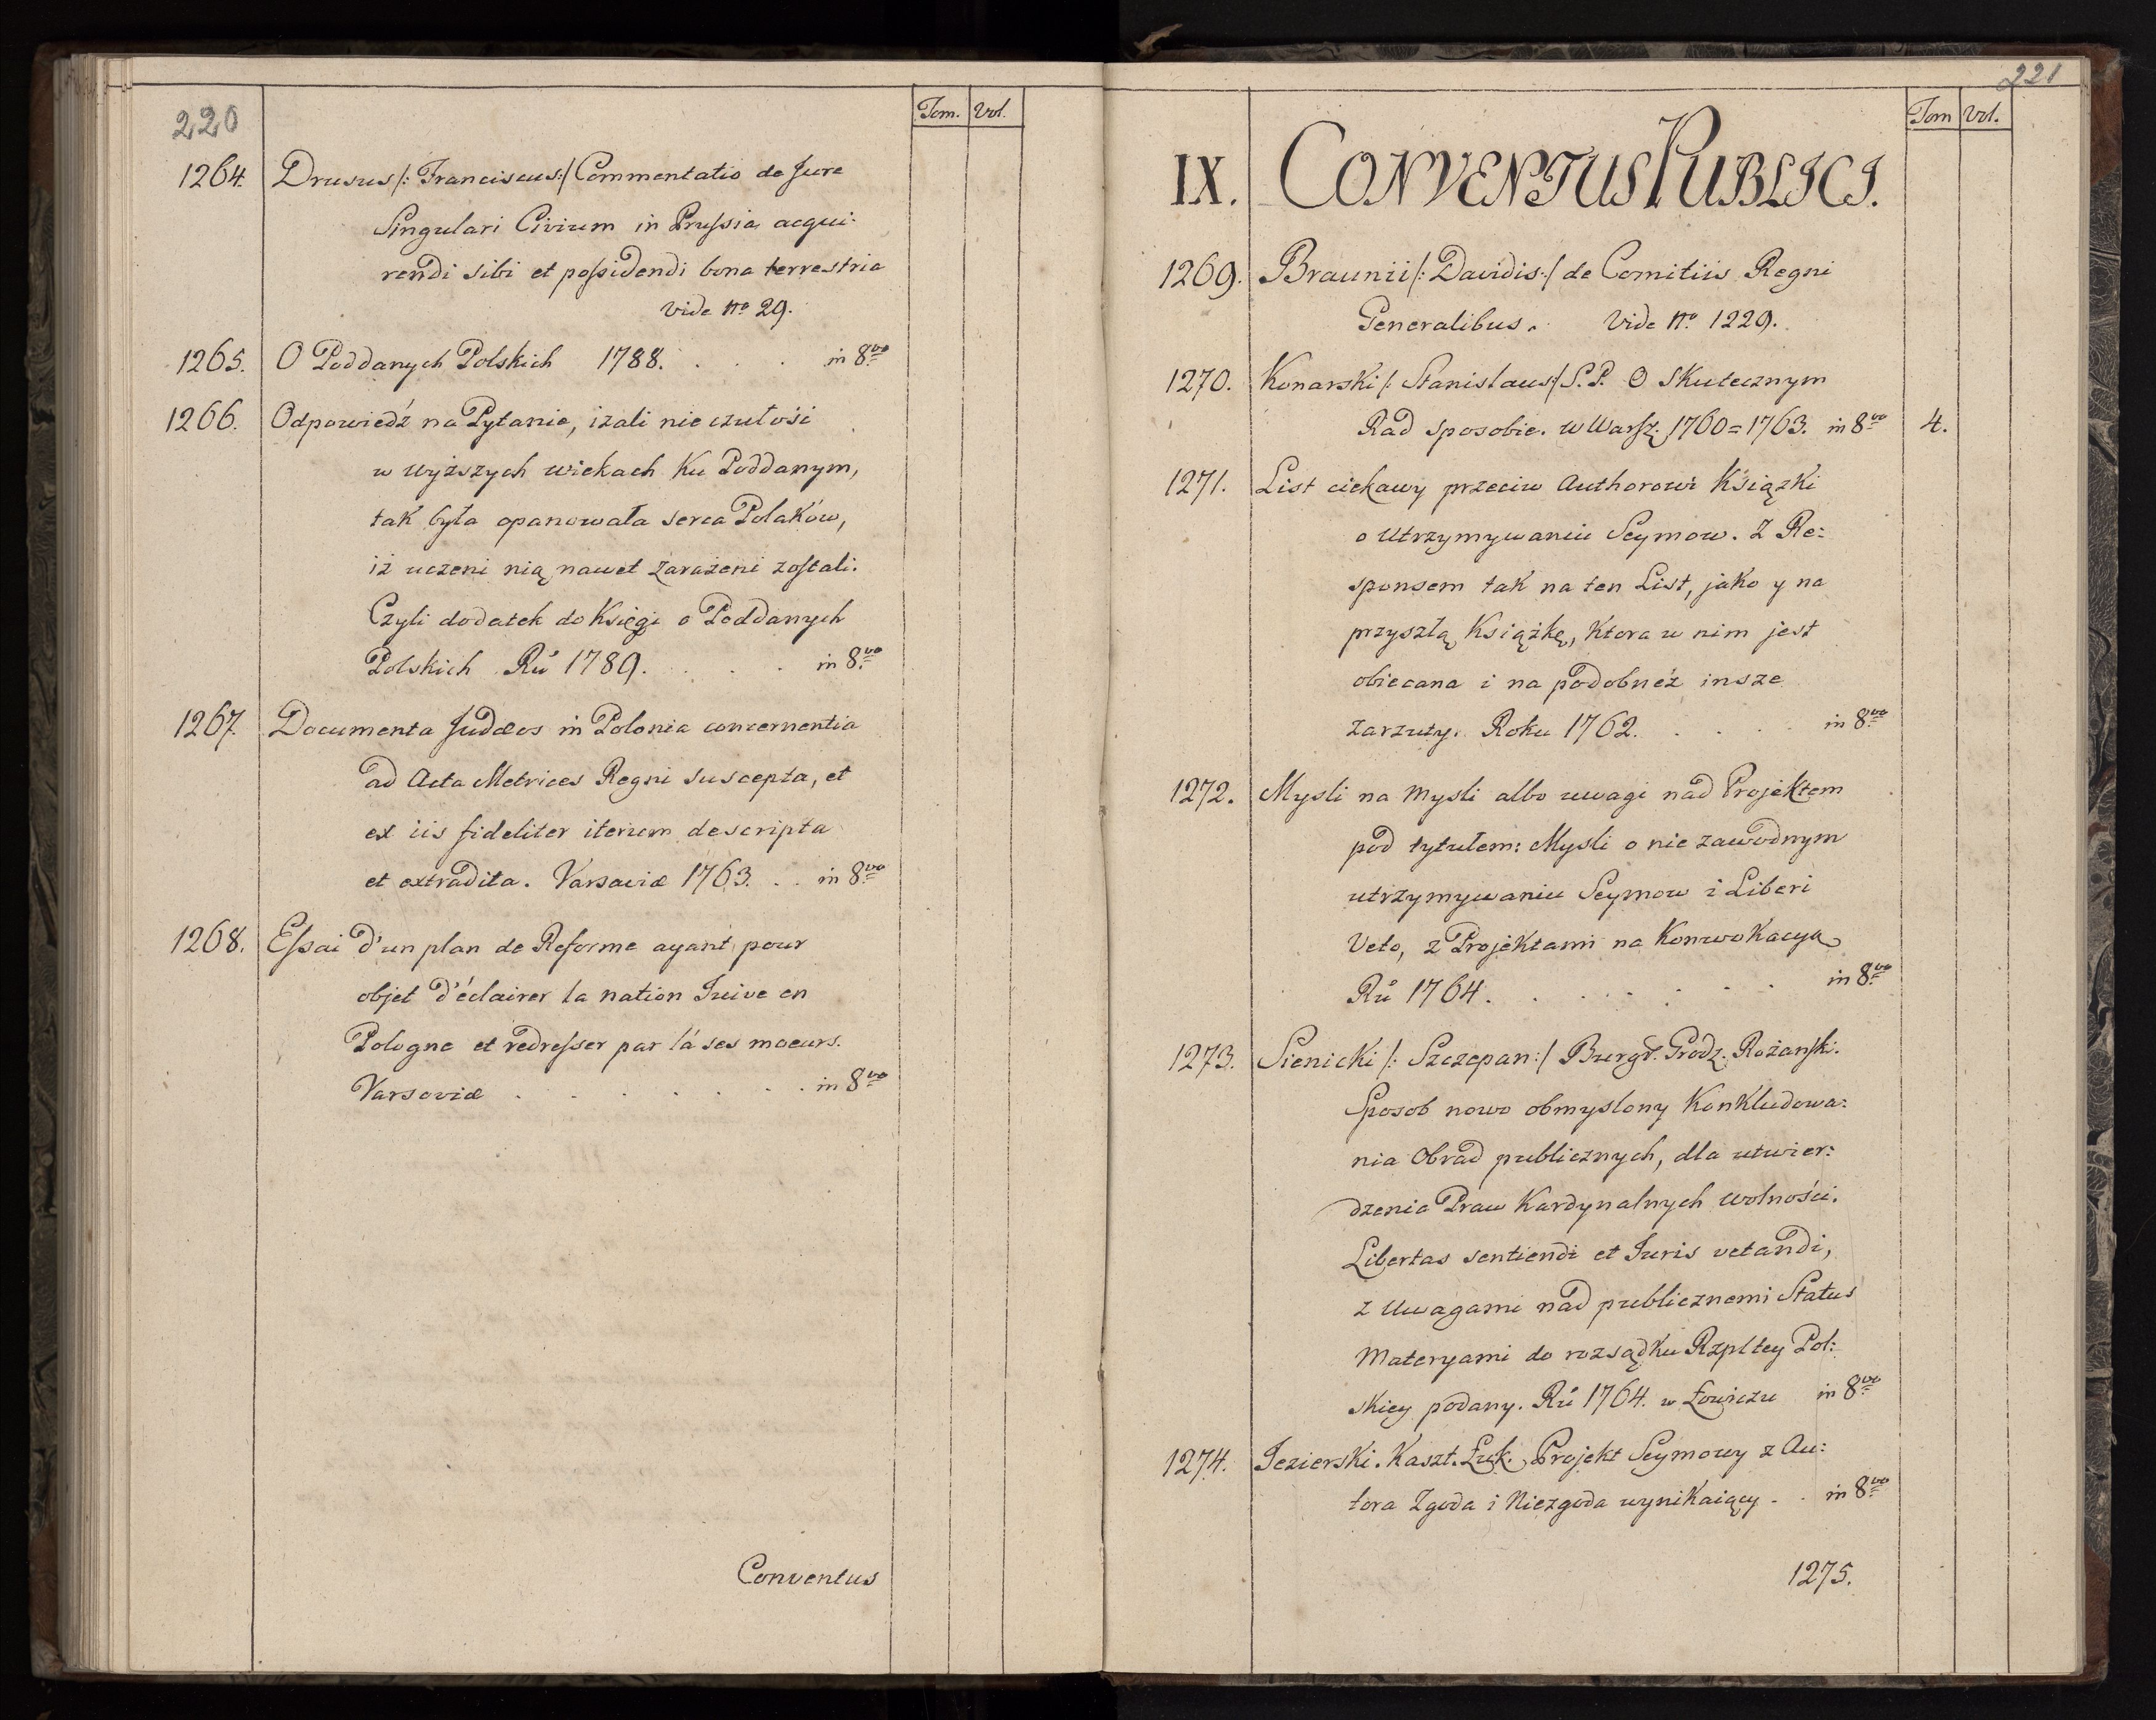 220
Tom. Vol.
1264. Drusus /: Franciscus :/ Commentatio de Jure
Singulari Civium in Prussia acqui:
rendi sibi et possidendi bona terrestria
vide No 29.
1265. O Poddanych Polskich 1788. . . . in 8vo
1266. Odpowiedź na Pytanie, izali nie czułości
w wyższych wiekach Ku Poddanym,
tak była opanowała serca Polaków,
iż uczeni nią nawet zarażeni zostali.
Czyli dodatek do Księgi o Poddanych
Polskich Ru 1789. . . . in 8vo
1267. Documenta Judæos in Polonia concernentia
ad Acta Metrices Regni suscepta, et
ex iis fideliter iterum descripta
et extradita. Varsaviæ 1763. . . in 8vo
1268. Essai d'un plan de Reforme ayant pour
objet d'éclairer la nation Juive en
Pologne et redresser par lá ses moeurs.
Varsoviæ . . . . . . in 8vo
Conventus
221
Tom Vol.
IX. CONVENTUS PUBLICI.
1269. Braunii /: Davidis :/ de Comitiis Regni
Generalibus. Vide No 1229.
1270. Konarski /: Stanislaus :/ S. P. O Skutecznym
Rad sposobie. w Warsz. 1760=1763. in 8vo 4.
1271. List ciekawy przeciw Authorowi Książki
o Utrzymywaniu Seymow. Z Re:
sponsem tak na ten List, jako y na
przyszłą Książkę, Ktora w nim jest
obiecana i na podobneż insze
zarzuty. Roku 1762. . . . . in 8vo
1272. Mysli na mysli albo uwagi nad Projektem
pod tytułem: Mysli o nie zawodnym
utrzymywaniu Seymow i Liberi
Veto, z Projektami na Konwokacyą
Ru 1764. . . . . . . in 8vo
1273. Sienicki /: Szczepan :/ Burgr. Grodz. Rożański.
Sposob nowo obmyslony Konkludowa:
nia Obrad publicznych, dla utwier:
dzenia Praw Kardynalnych wolności.
Libertas sentiendi et Juris vetandi,
z Uwagami nad publicznemi Status
Materyami do rozsądku Rzpltey Pol:
skiey podany. Ru 1764. w Łowiczu in 8vo
1274. Jezierski. Kaszt. Łuk. Projekt Seymowy z Au:
tora Zgoda i Niezgoda wynikaiący . . in 8vo
1275.